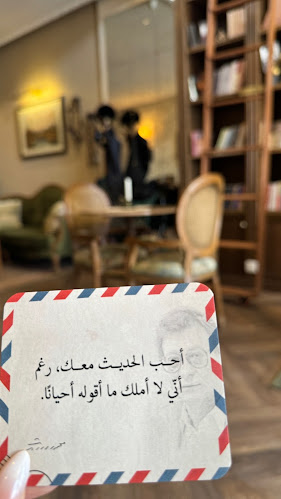 أحب الحديث معك، رغم
أنّي لا أملك ما أقوله أحيانًا.